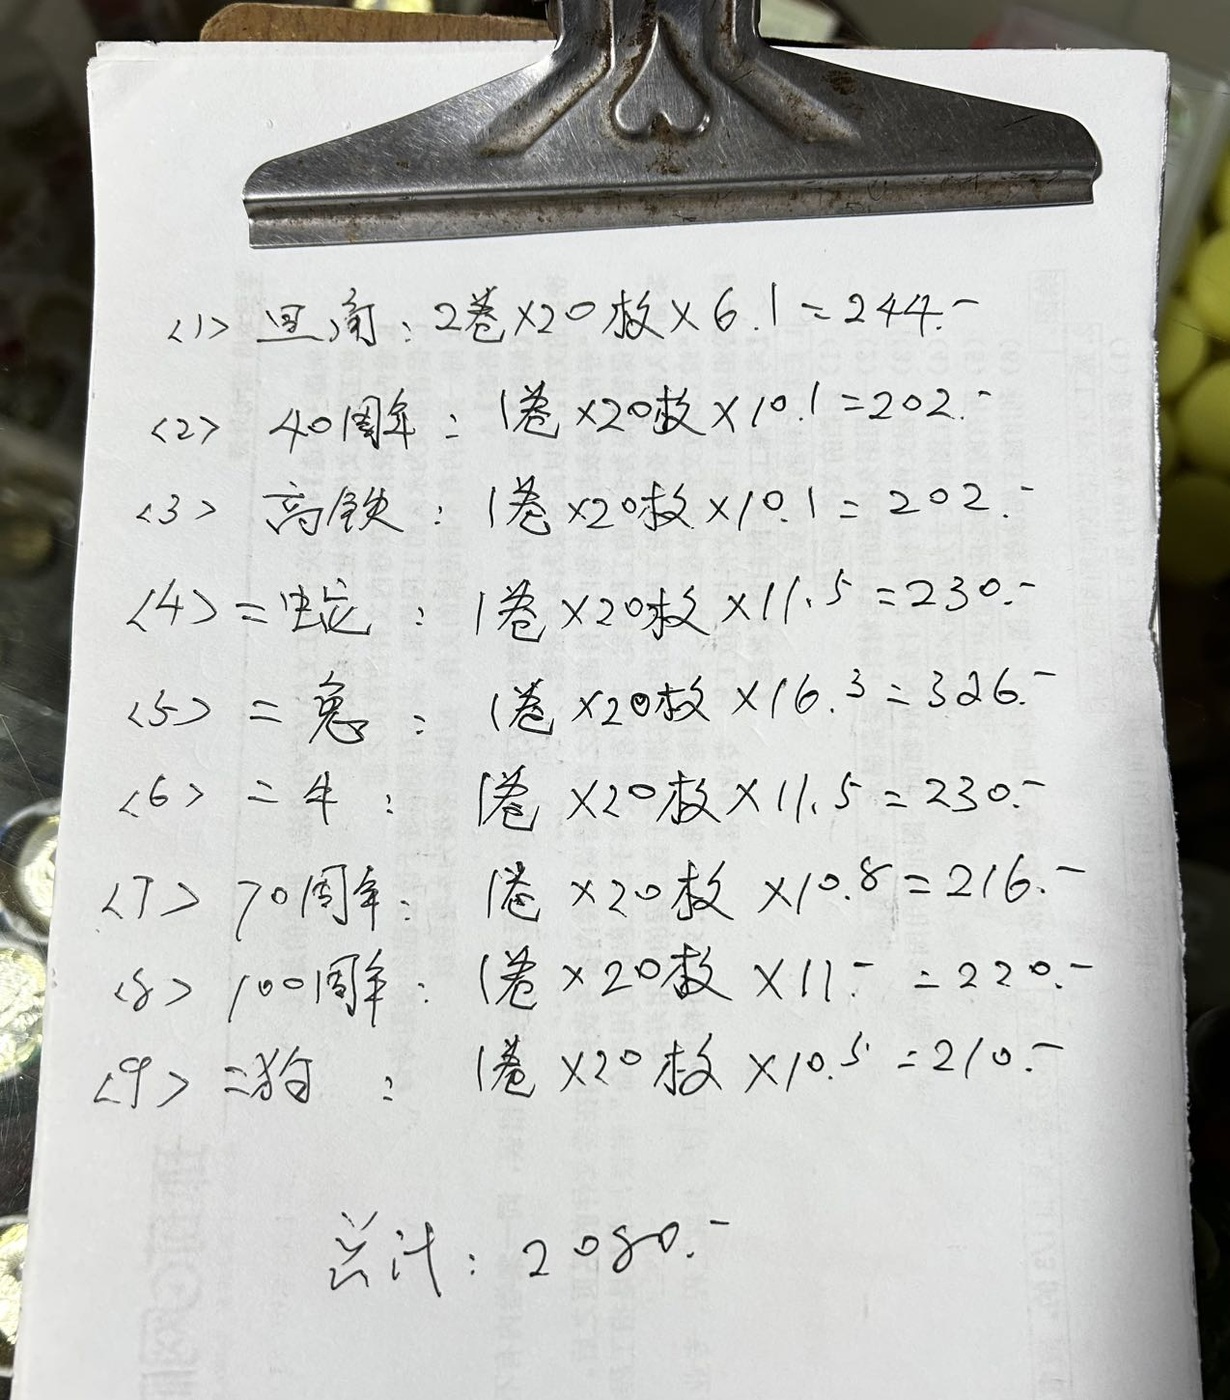 <1> 里角：2卷×20枚×6.1=244.-
<2> 40周年：1卷×20枚×10.1=202.-
<3> 高铁：1卷×20枚×10.1=202.-
<4> 二蛇：1卷×20枚×11.5=230.-
<5> 二兔：1卷×20枚×16.3=326.-
<6> 二牛：1卷×20枚×11.5=230.-
<7> 70周年：1卷×20枚×10.8=216.-
<8> 100周年：1卷×20枚×11.-=220.-
<9> 二狗：1卷×20枚×10.5=210.-
总计：2080.-